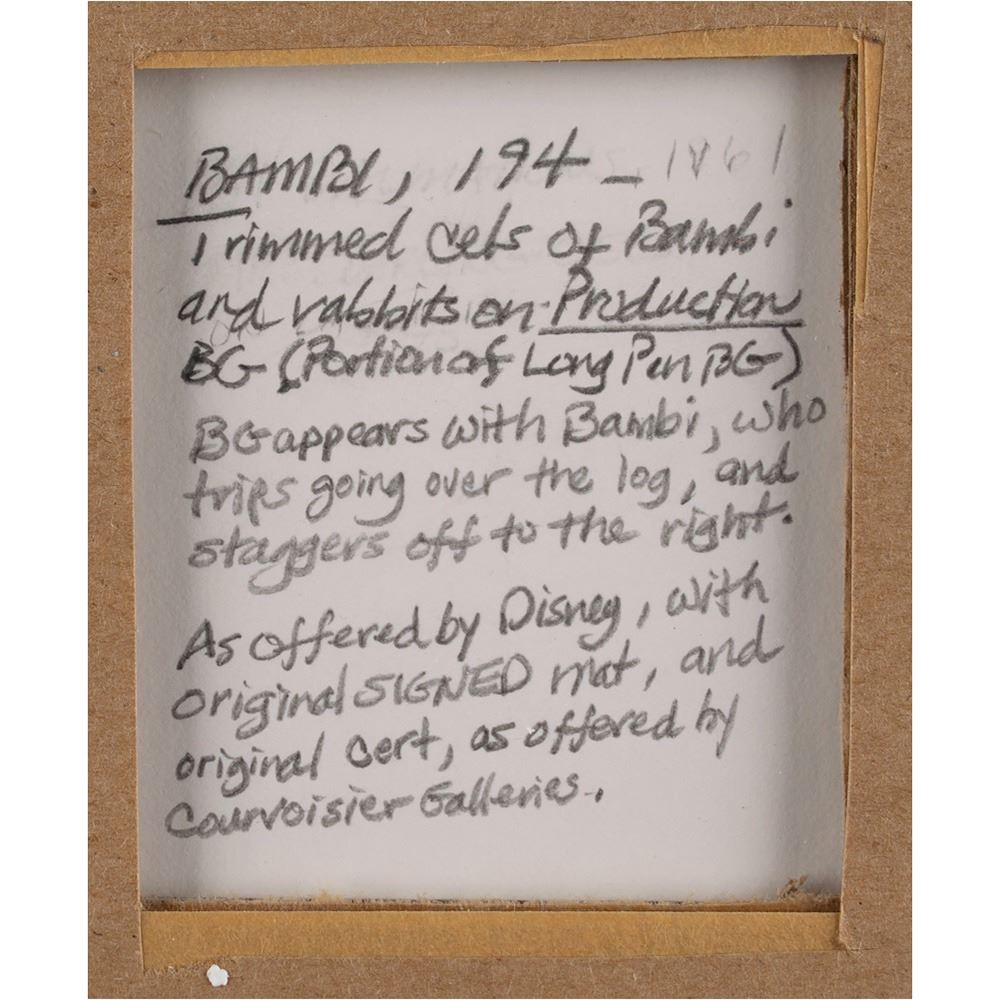 BAMBI, 194_ 1861
Trimmed cels of Bambi
and rabbits on Production
BG (Portion of Long Pan BG)
BG appears with Bambi, who
trips going over the log, and
staggers off to the right.
As offered by Disney, with
original SIGNED mat, and
original cert, as offered by
Courvoisier Galleries.